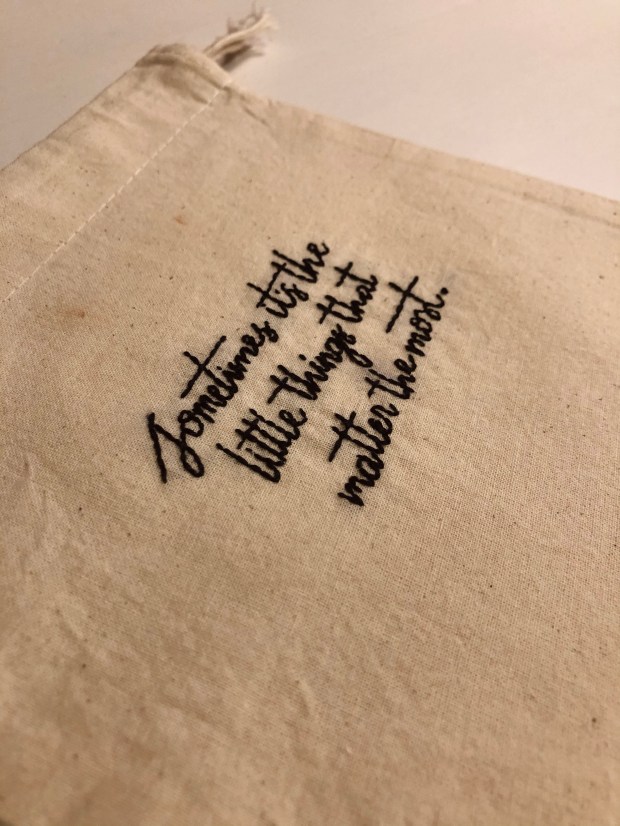 Sometimes it's the
little things that
matter the most.